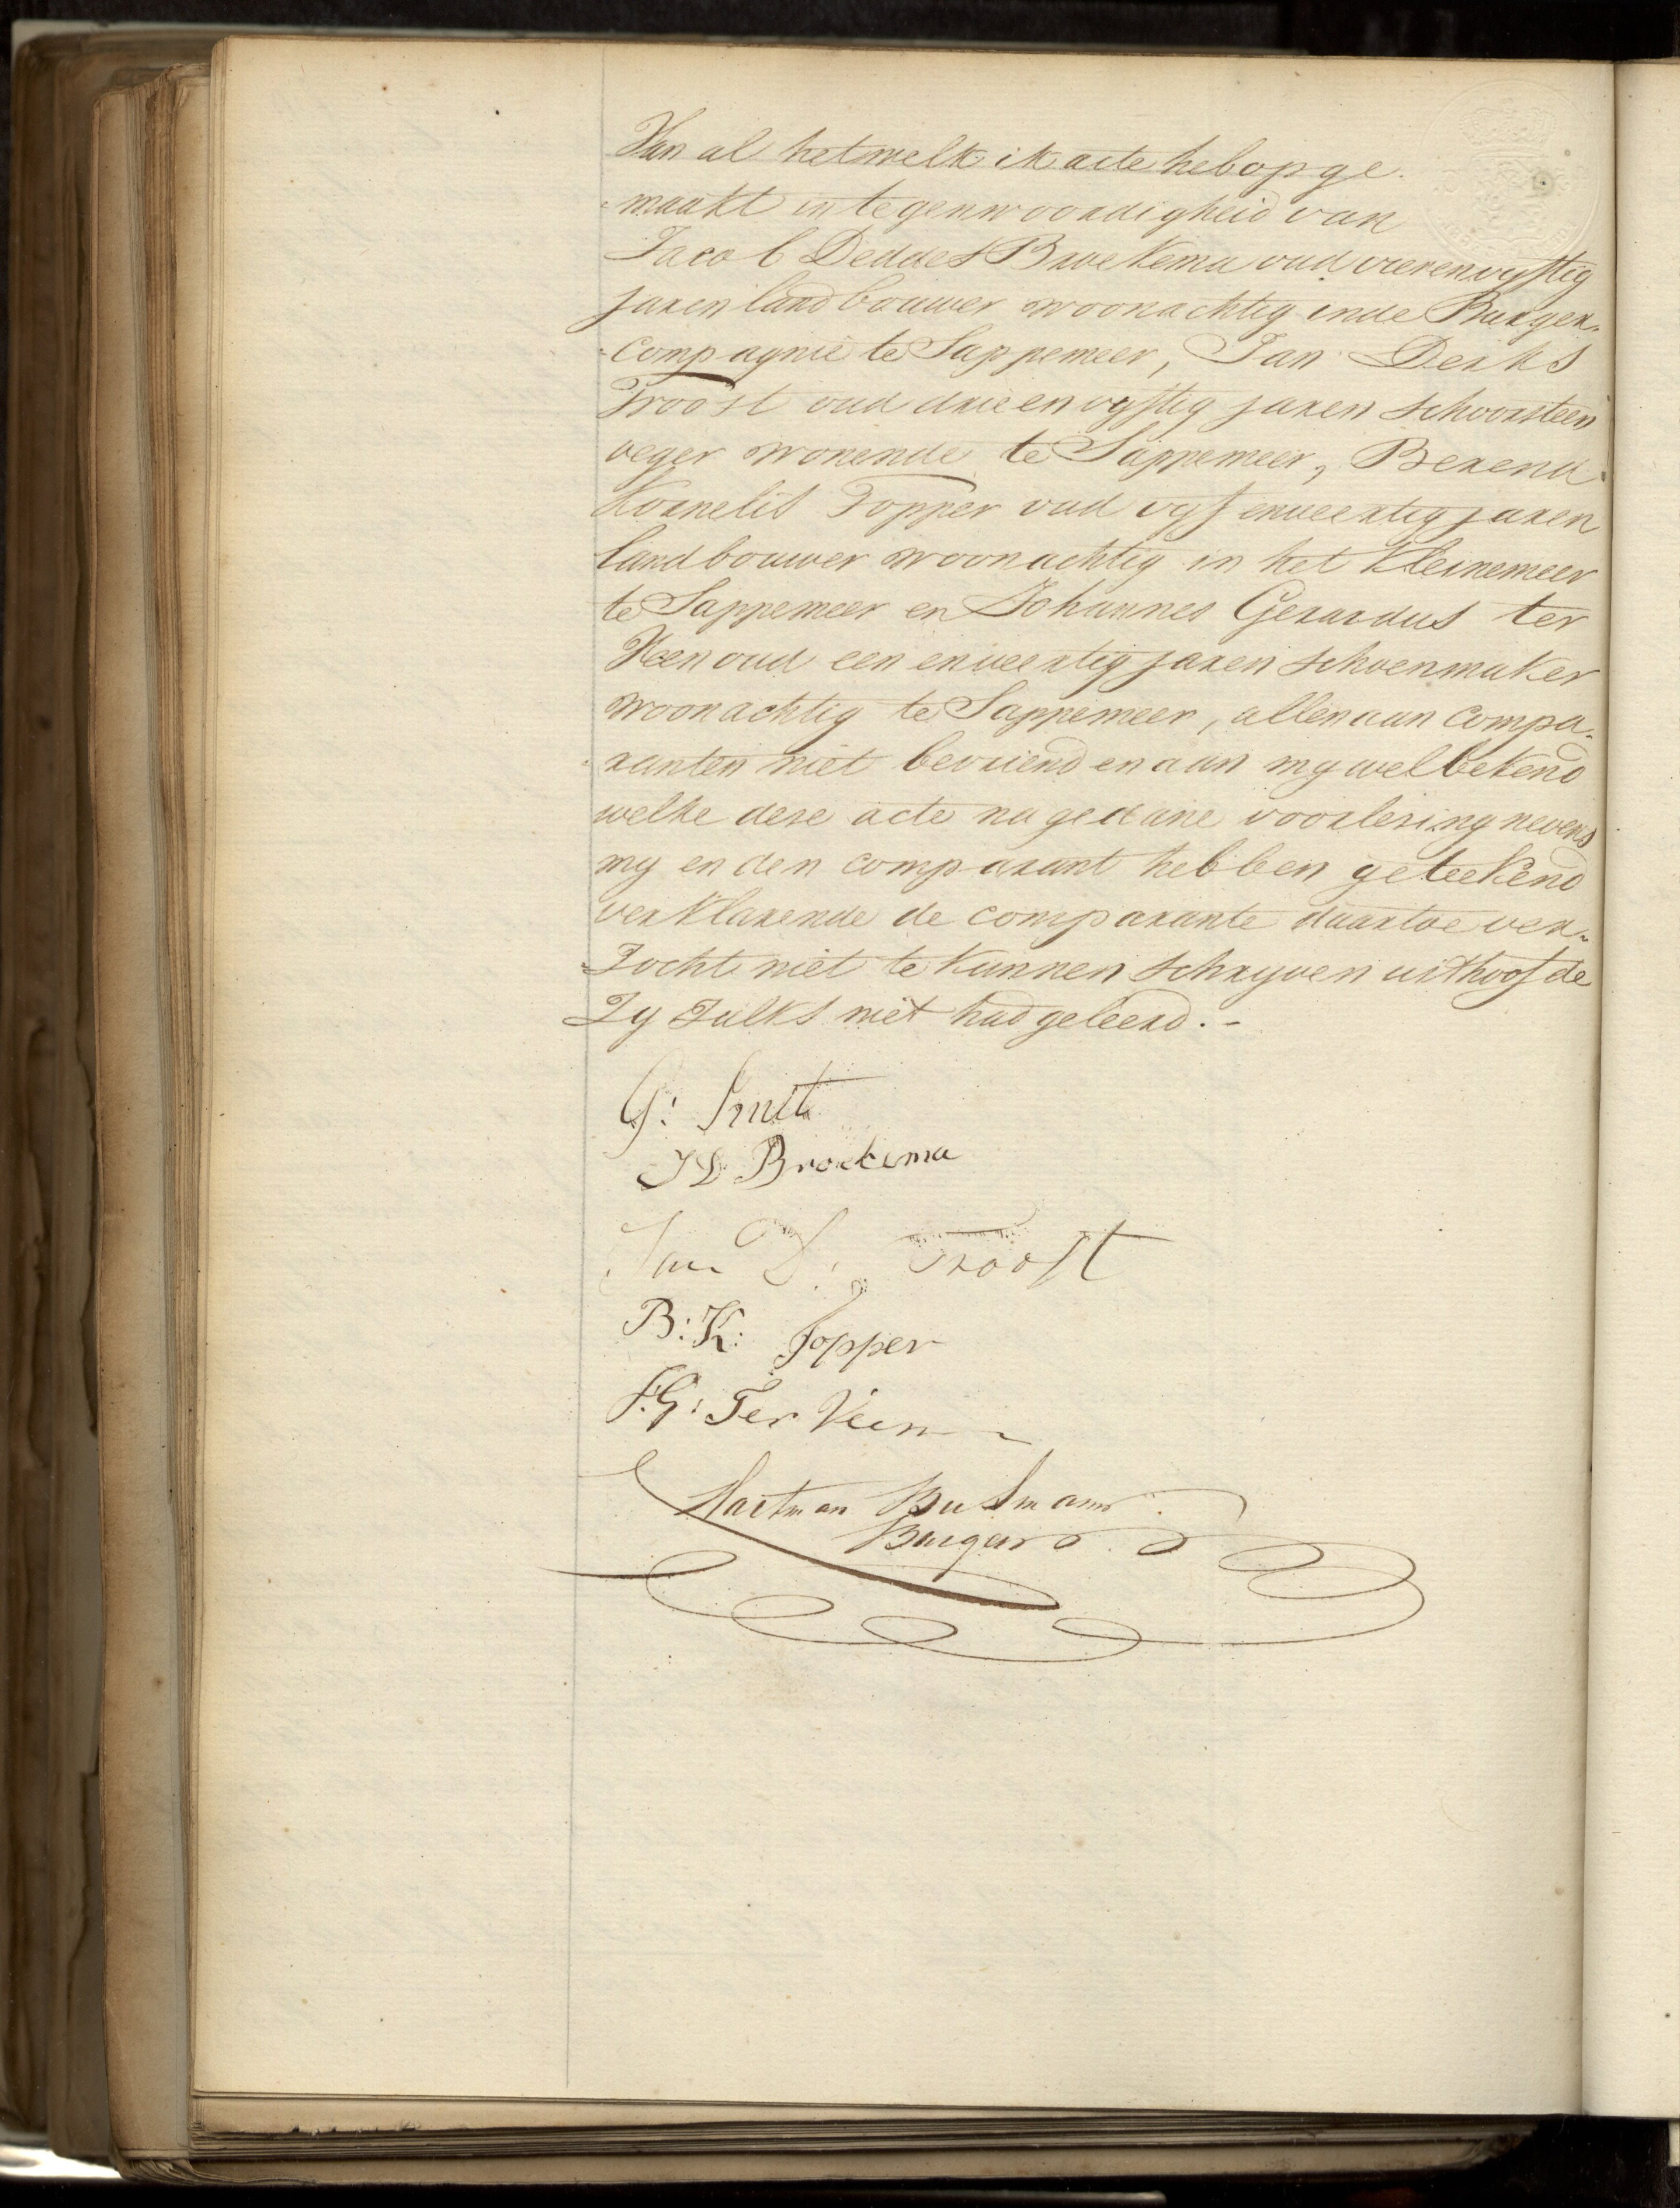 Van al hetwelk ik acte heb opge-
maakt in tegenwoordigheid van
Jacob Deddes Broekema oud vierenvyftig
jaren landbouwer woonachtig inde Borger-
compagnie te Sappemeer, Jan Derks
Troost oud drieenvyftig jaren schoorsteen
veger wonende te Sappemeer, Berend
Kornelis Topper oud vyfenveertig jaren
landbouwer woonachtig in het Kleinemeer
te Sappemeer en Johannes Gerardus ter
Veen oud een enveertig jaren schoenmaker
woonachtig te Sappemeer, allen aan compa-
ranten niet bevriend en aan my wel bekend
welke deze acte na gedane voorlezing nevens
my en den comparant hebben geteekend
verklarende de comparante daartoe ver-
zocht niet te kunnen schryven uithoofde
zy zulks niet had geleerd.-
G: Smit
J D Broekema
Jan D: Troost
B: K: Topper
J: G: Ter Veen
Hartman Busmann
Burgem